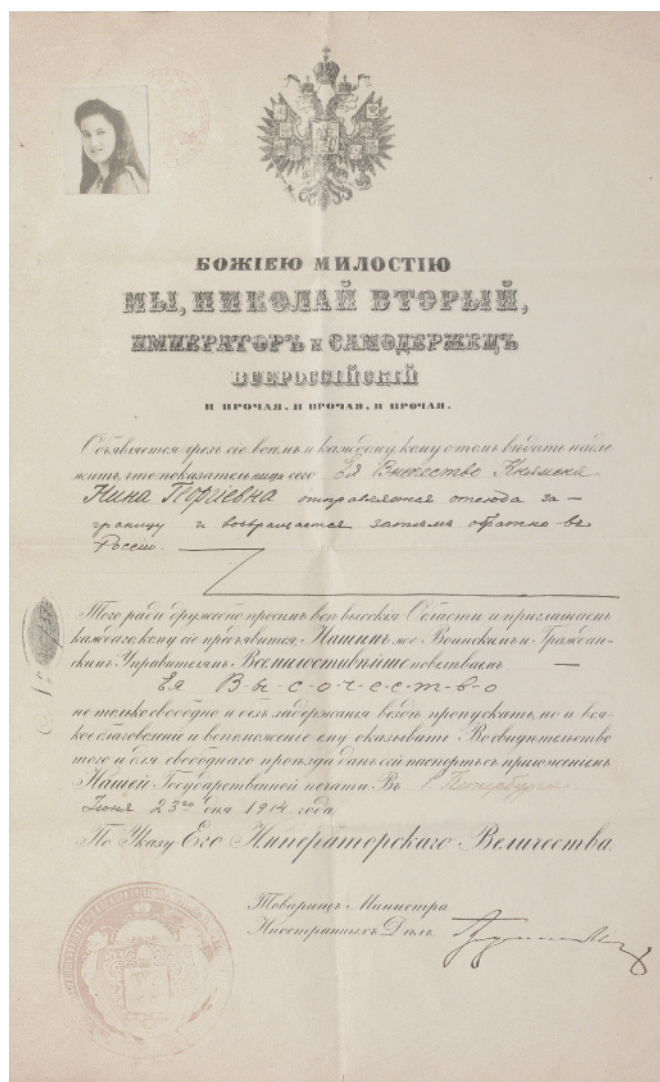 БОЖІЕЮ МИЛОСТІЮ
МЫ, НИКОЛАЙ ВТОРЫЙ,
ИМПЕРАТОРЪ и САМОДЕРЖЕЦЪ
ВСЕРОССІЙСКІЙ
И ПРОЧАЯ, И ПРОЧАЯ, И ПРОЧАЯ.
Объявляется чрезъ сіе всѣмъ и каждому, кому о томъ вѣдать надле
житъ, что показатель сего Ея Высочество Княжна
Нина Георгіевна отправляется отсюда за-
границу и возвращается затѣмъ обратно въ
Россію.
Того ради дружебно просимъ всѣ высокія Области и приглашаемъ
каждаго, кому сіе предъявится, Нашимъ же Воинскимъ и Граждан-
скимъ Управителямъ Всемилостивѣйше повелѣваемъ —
Ея В-ы-с-о-ч-е-с-т-в-о
не только свободно и безъ задержанія вездѣ пропускать, но и вся-
кое благоволеніе и вспоможеніе ему оказывать. Во свидѣтельство
того и для свободнаго проѣзда данъ сей паспортъ съ приложеніемъ
Нашей Государственной печати. Въ С. Петербургѣ
Іюня 23го дня 1914 года
По Указу Его Императорскаго Величества.
Товарищъ Министра
Иностранныхъ Дѣлъ